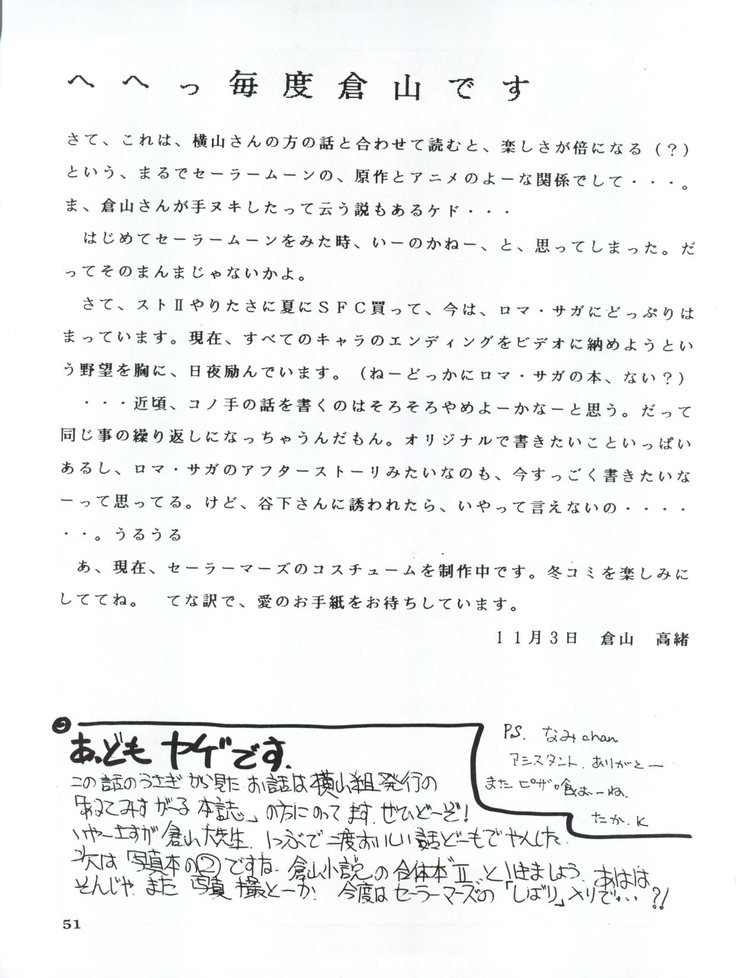 へへっ毎度倉山です
さて、これは、横山さんの方の話と合わせて読むと、楽しさが倍になる（？）
という、まるでセーラームーンの、原作とアニメのよーな関係でして・・・。
ま、倉山さんが手ヌキしたって云う説もあるケド・・・
はじめてセーラームーンをみた時、いーのかねー、と、思ってしまった。だ
ってそのまんまじゃないかよ。
さて、ストⅡやりたさに夏にＳＦＣ買って、今は、ロマ・サガにどっぷりは
まっています。現在、すべてのキャラのエンディングをビデオに納めようとい
う野望を胸に、日夜励んでいます。（ねーどっかにロマ・サガの本、ない？）
・・・近頃、コノ手の話を書くのはそろそろやめよーかなーと思う。だって
同じ事の繰り返しになっちゃうんだもん。オリジナルで書きたいこといっぱい
あるし、ロマ・サガのアフターストーリみたいなのも、今すっごく書きたいな
ーって思ってる。けど、谷下さんに誘われたら、いやって言えないの・・・・
・・。うるうる
あ、現在、セーラーマーズのコスチュームを制作中です。冬コミを楽しみに
しててね。　てな訳で、愛のお手紙をお待ちしています。
１１月３日　倉山　高緒
P.S. なみchan
アシスタント、ありがとー
また ピザ喰おーね、
たか.K
あ、ども ヤゲです、
この話のうさぎから見たお話は横山組発行の
「おねてみすがる本誌」の方にのってます ぜひどーぞ！
いやーさすが倉山大先生、1つぶで二度おいしい話どーもでやんした
次は「写真本の②」ですな、倉山小説の合体本"Ⅱ"といきましょう、あはは
そんじゃ また 写真 撮とーか、今度はセーラーマーズの「しばり」入りで…?!
51